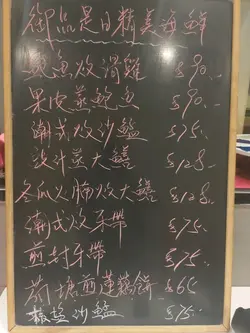 御品是日精美海鮮
鮑魚炆滑雞 $90.
果皮蒸鮑魚 $90.
潮式炆沙鯭 $75.
豉汁蒸大鱔 $128.
冬瓜火腩炆大鱔 $128.
潮式炆牙帶 $75.
煎封牙帶 $75.
煎蓮藕餅 $65
椒鹽沙鯭 $75.